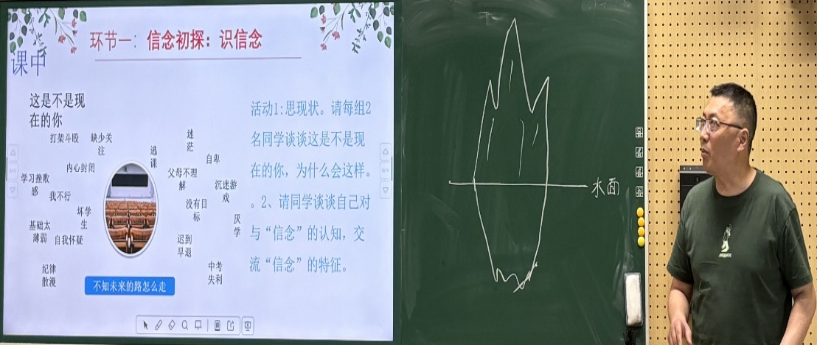 环节一：信念初探：识信念
课中
这是不是现
在的你
打架斗殴
缺少关
注
迷
茫
逃
课
自卑
内心封闭
父母不理
解
学习挫败
感
我不行
沉迷游
戏
没有目
标
坏学
生
厌
学
基础太
薄弱
自我怀疑
迟到
早退
纪律
散漫
中考
失利
不知未来的路怎么走
活动1：思现状。请每组2
名同学谈谈这是不是现
在的你，为什么会这样。
。2、请同学谈谈自己对
与“信念”的认知，交
流“信念”的特征。
水面